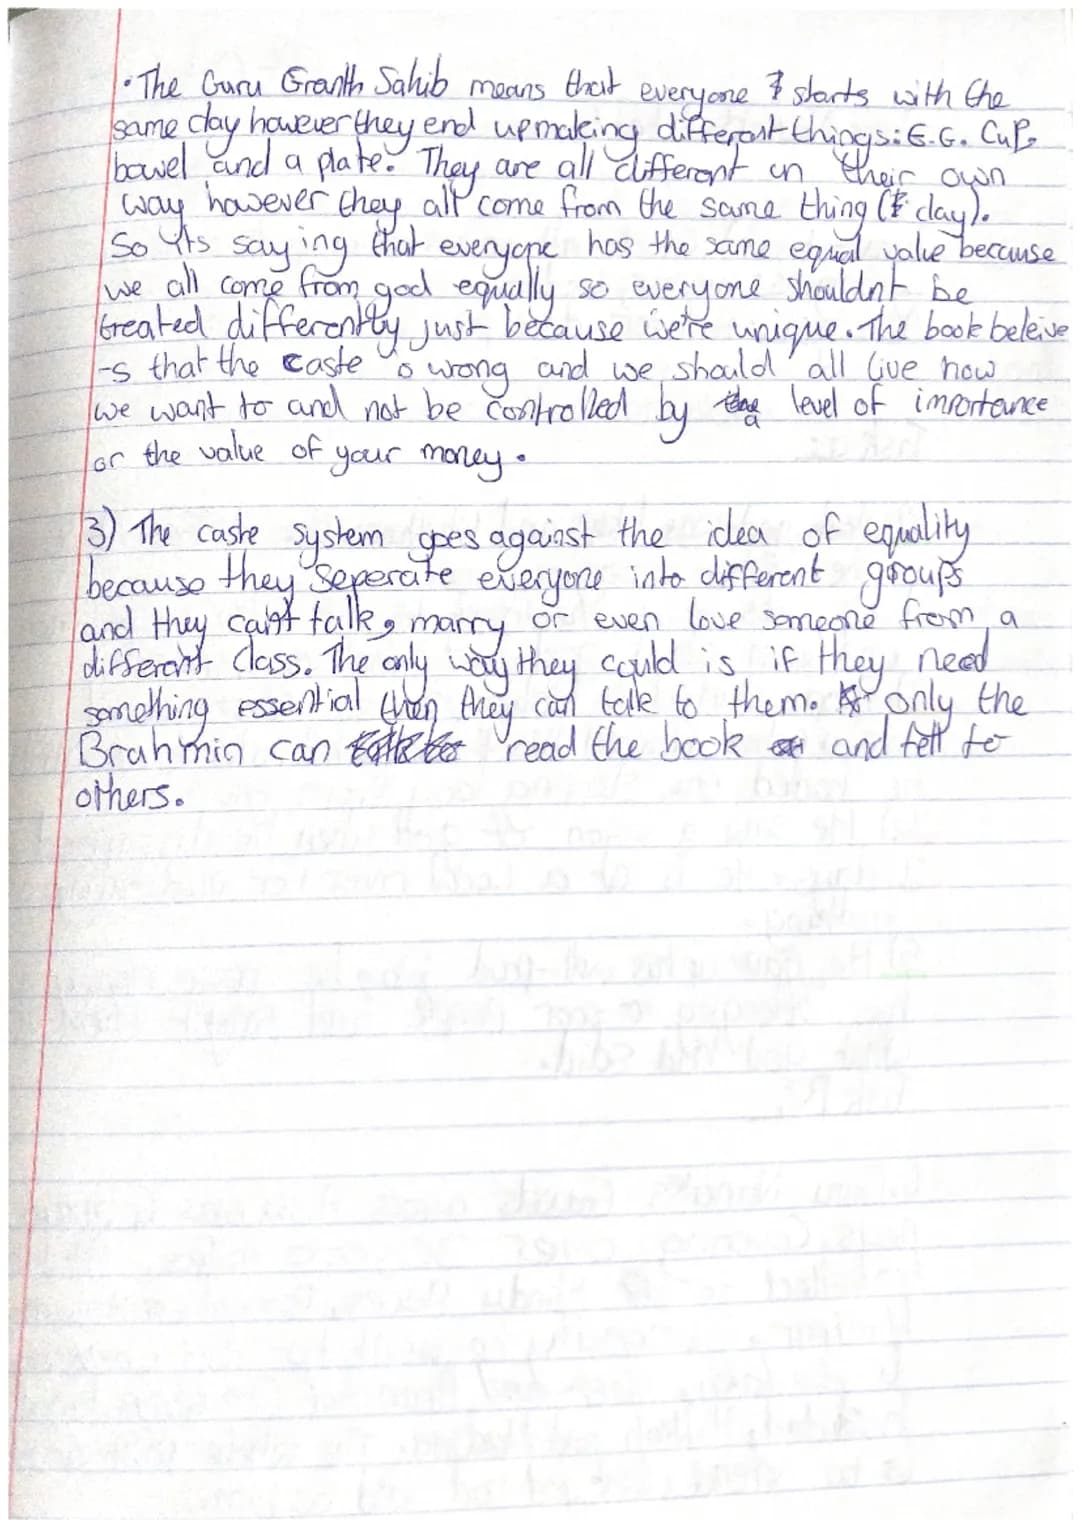 • The Guru Granth Sahib means that everyone starts with the
same clay however they end up making different things: E.G. Cup,
bowel and a plate. They are all different in their own
way however they all come from the same thing (clay).
So its saying that everyone has the same equal value because
we all come from god equally so everyone shouldnt be
treated differently just because we're unique. The book beleive
-s that the caste is wrong and we should all live how
we want to and not be controlled by a level of imrortance
or the value of your money.
3) The caste system goes against the idea of equality
because they seperate everyone into different groups
and they can't talk, marry or even love someone from a
different class. The only way they could is if they need
something essential then they can talk to them. only the
Brahmin can read the book and tell to
others.